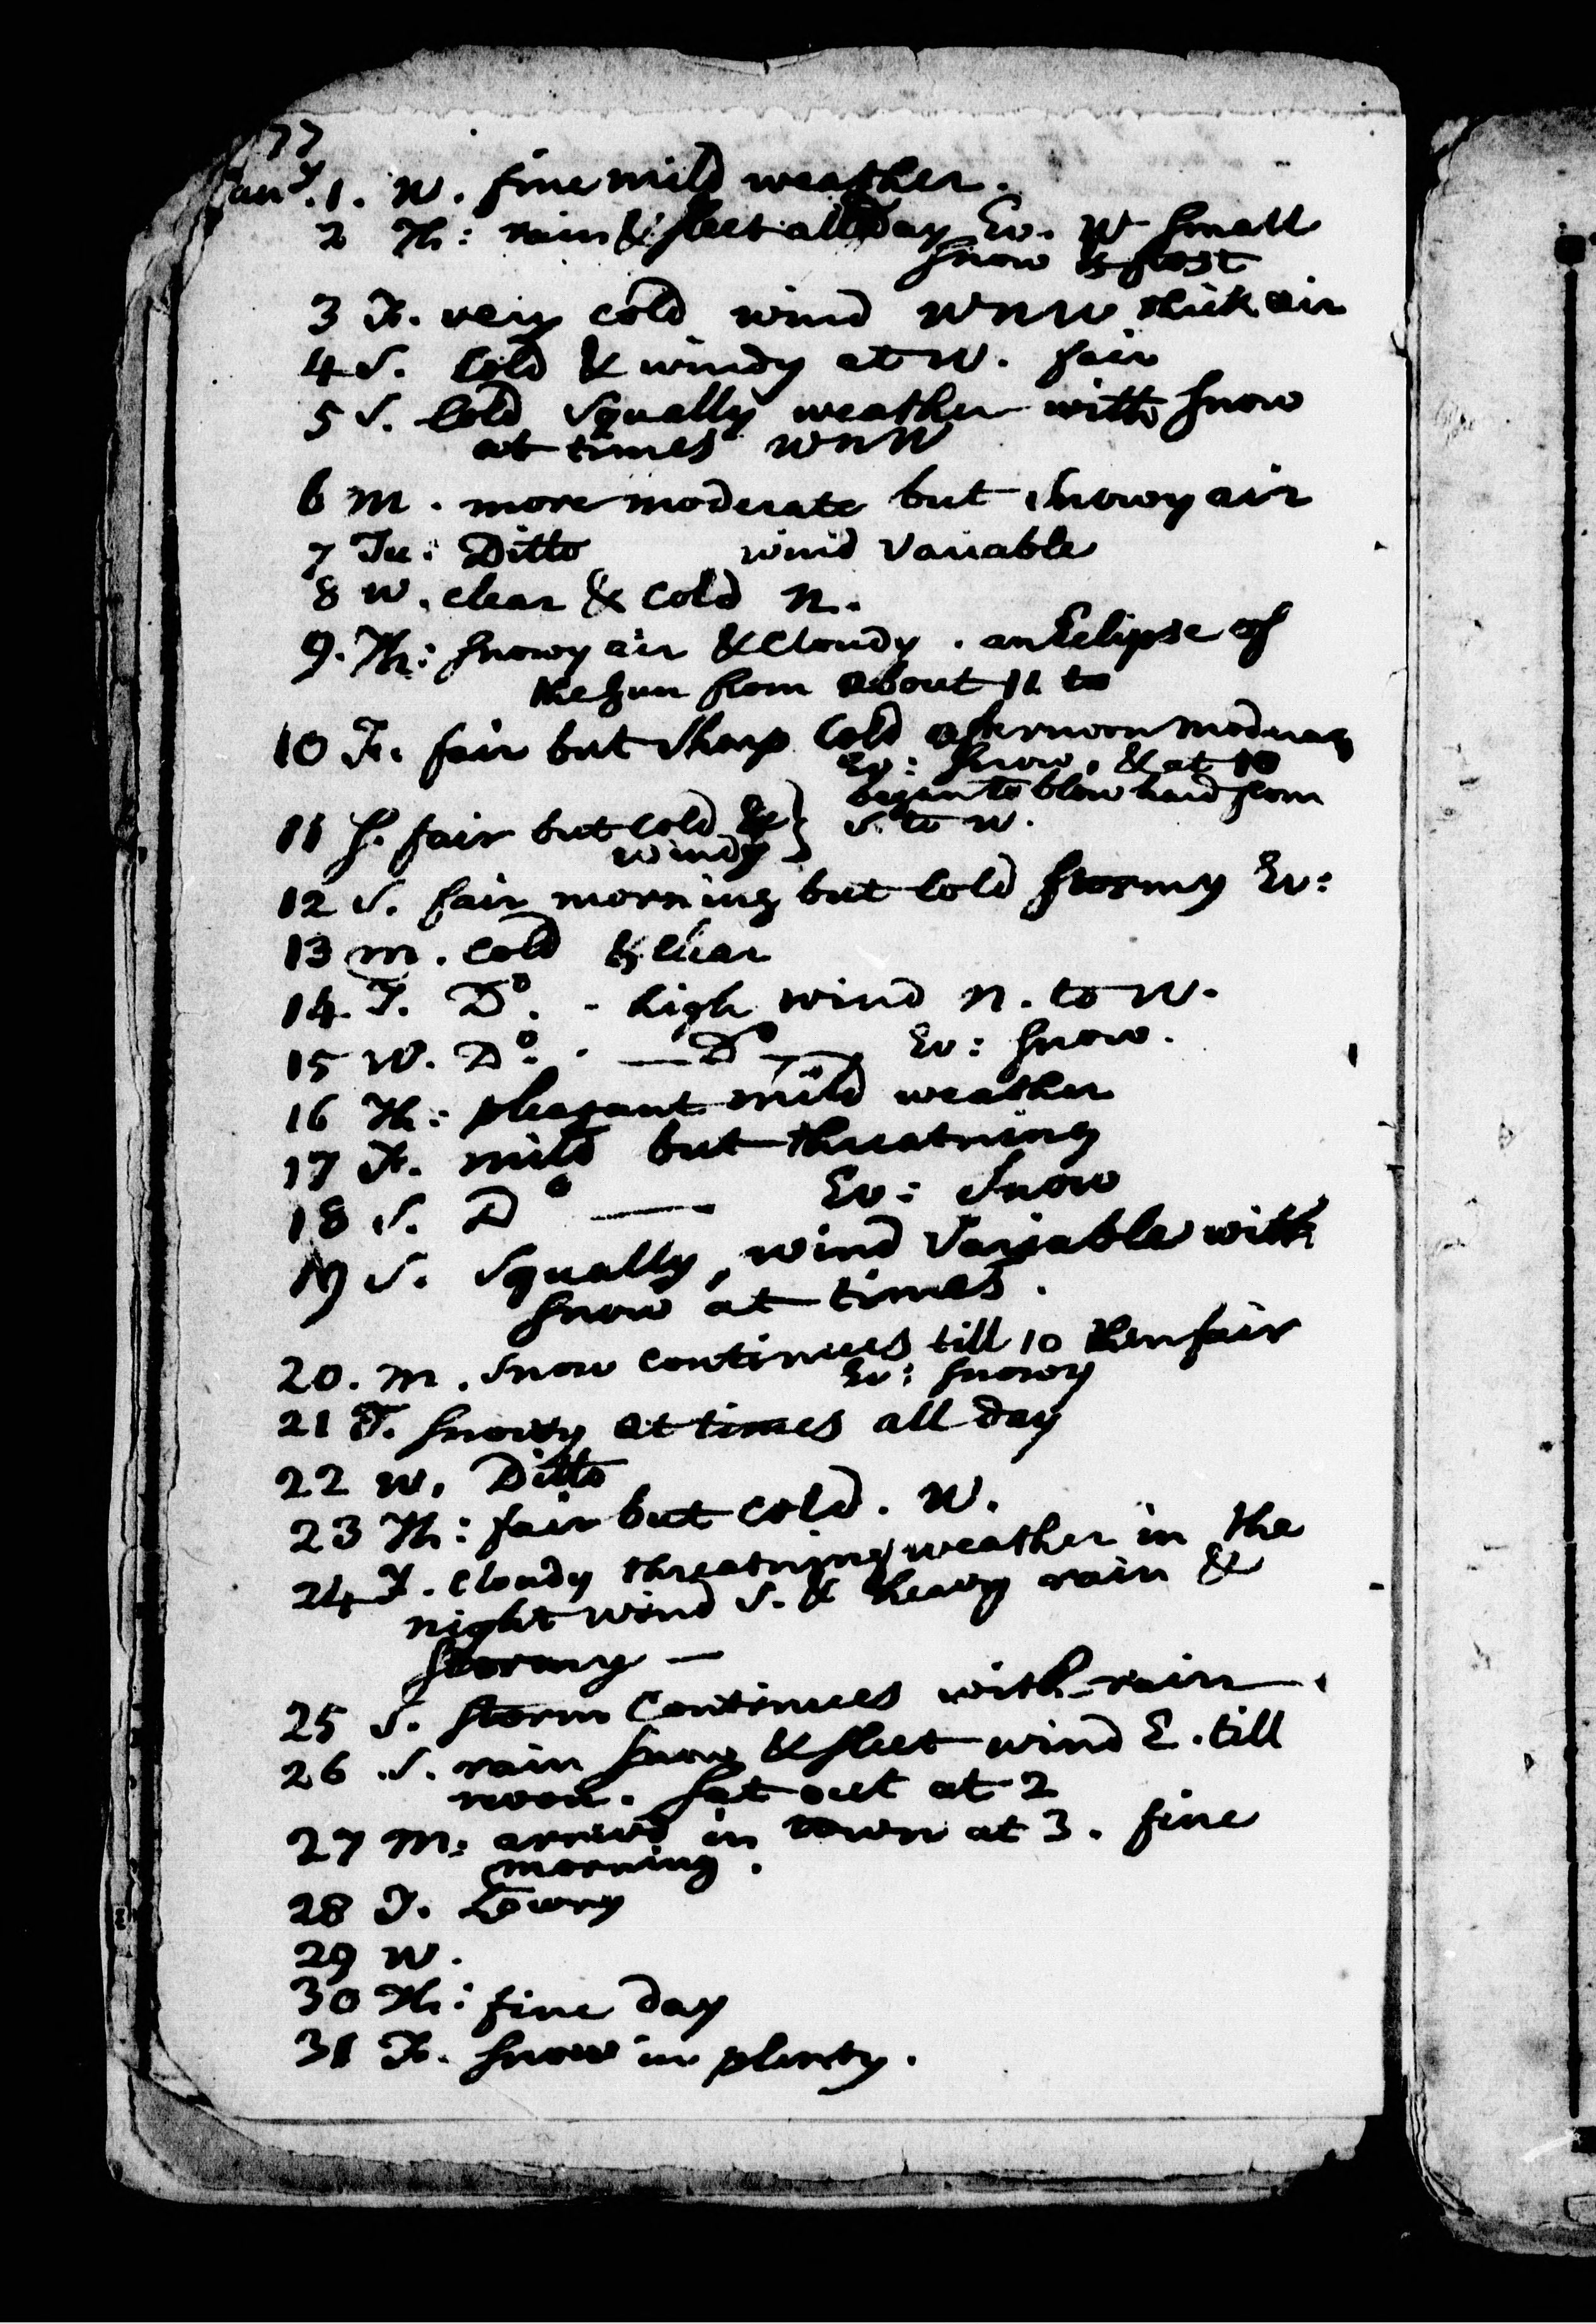 77
Jan.y 1. W. fine mild weather.
2 Th: rain & sleet all day Ev. W small
snow & frost
3 F. very cold wind WNW thick air
4 S. Cold & windy at W. fair
5 S. Cold Squally weather with snow
at times WNW
6 M. more moderate but Snowy air
7 Tu: Ditto wind Variable
8 W. clear & Cold N.
9. Th: snowy air & Cloudy. an Eclipse of
the sun from about 11 to
10 F. fair but sharp Cold afternoon moderate
Ev: snow, & at 10
began to blow hard from
11 S. fair but Cold & } S. to W.
windy
12 S. fair morning but Cold stormy Ev:
13 M. Cold & clear
14 T. Do. - high wind N. to W.
15 W. Do. - — Do — Ev: snow.
16 Th: pleasant mild weather
17 F. mild but threatning
18 S. Do — Ev: Snow
19 S. Squally, wind Variable with
snow at times.
20. M. Snow Continues till 10 then fair
Ev: snowy
21 T. snowy at times all day
22 W. Ditto
23 Th: fair but Cold. W.
24 F. Cloudy threatning weather in the
night wind S. & heavy rain &
stormy —
25 S. storm Continues with rain.
26 S. rain snow & sleet wind E. till
noon. sat out at 2
27 M: arrived in town at 3. fine
morning.
28 T. Lowry
29 W.
30 Th: fine day
31 F. snow in plenty.